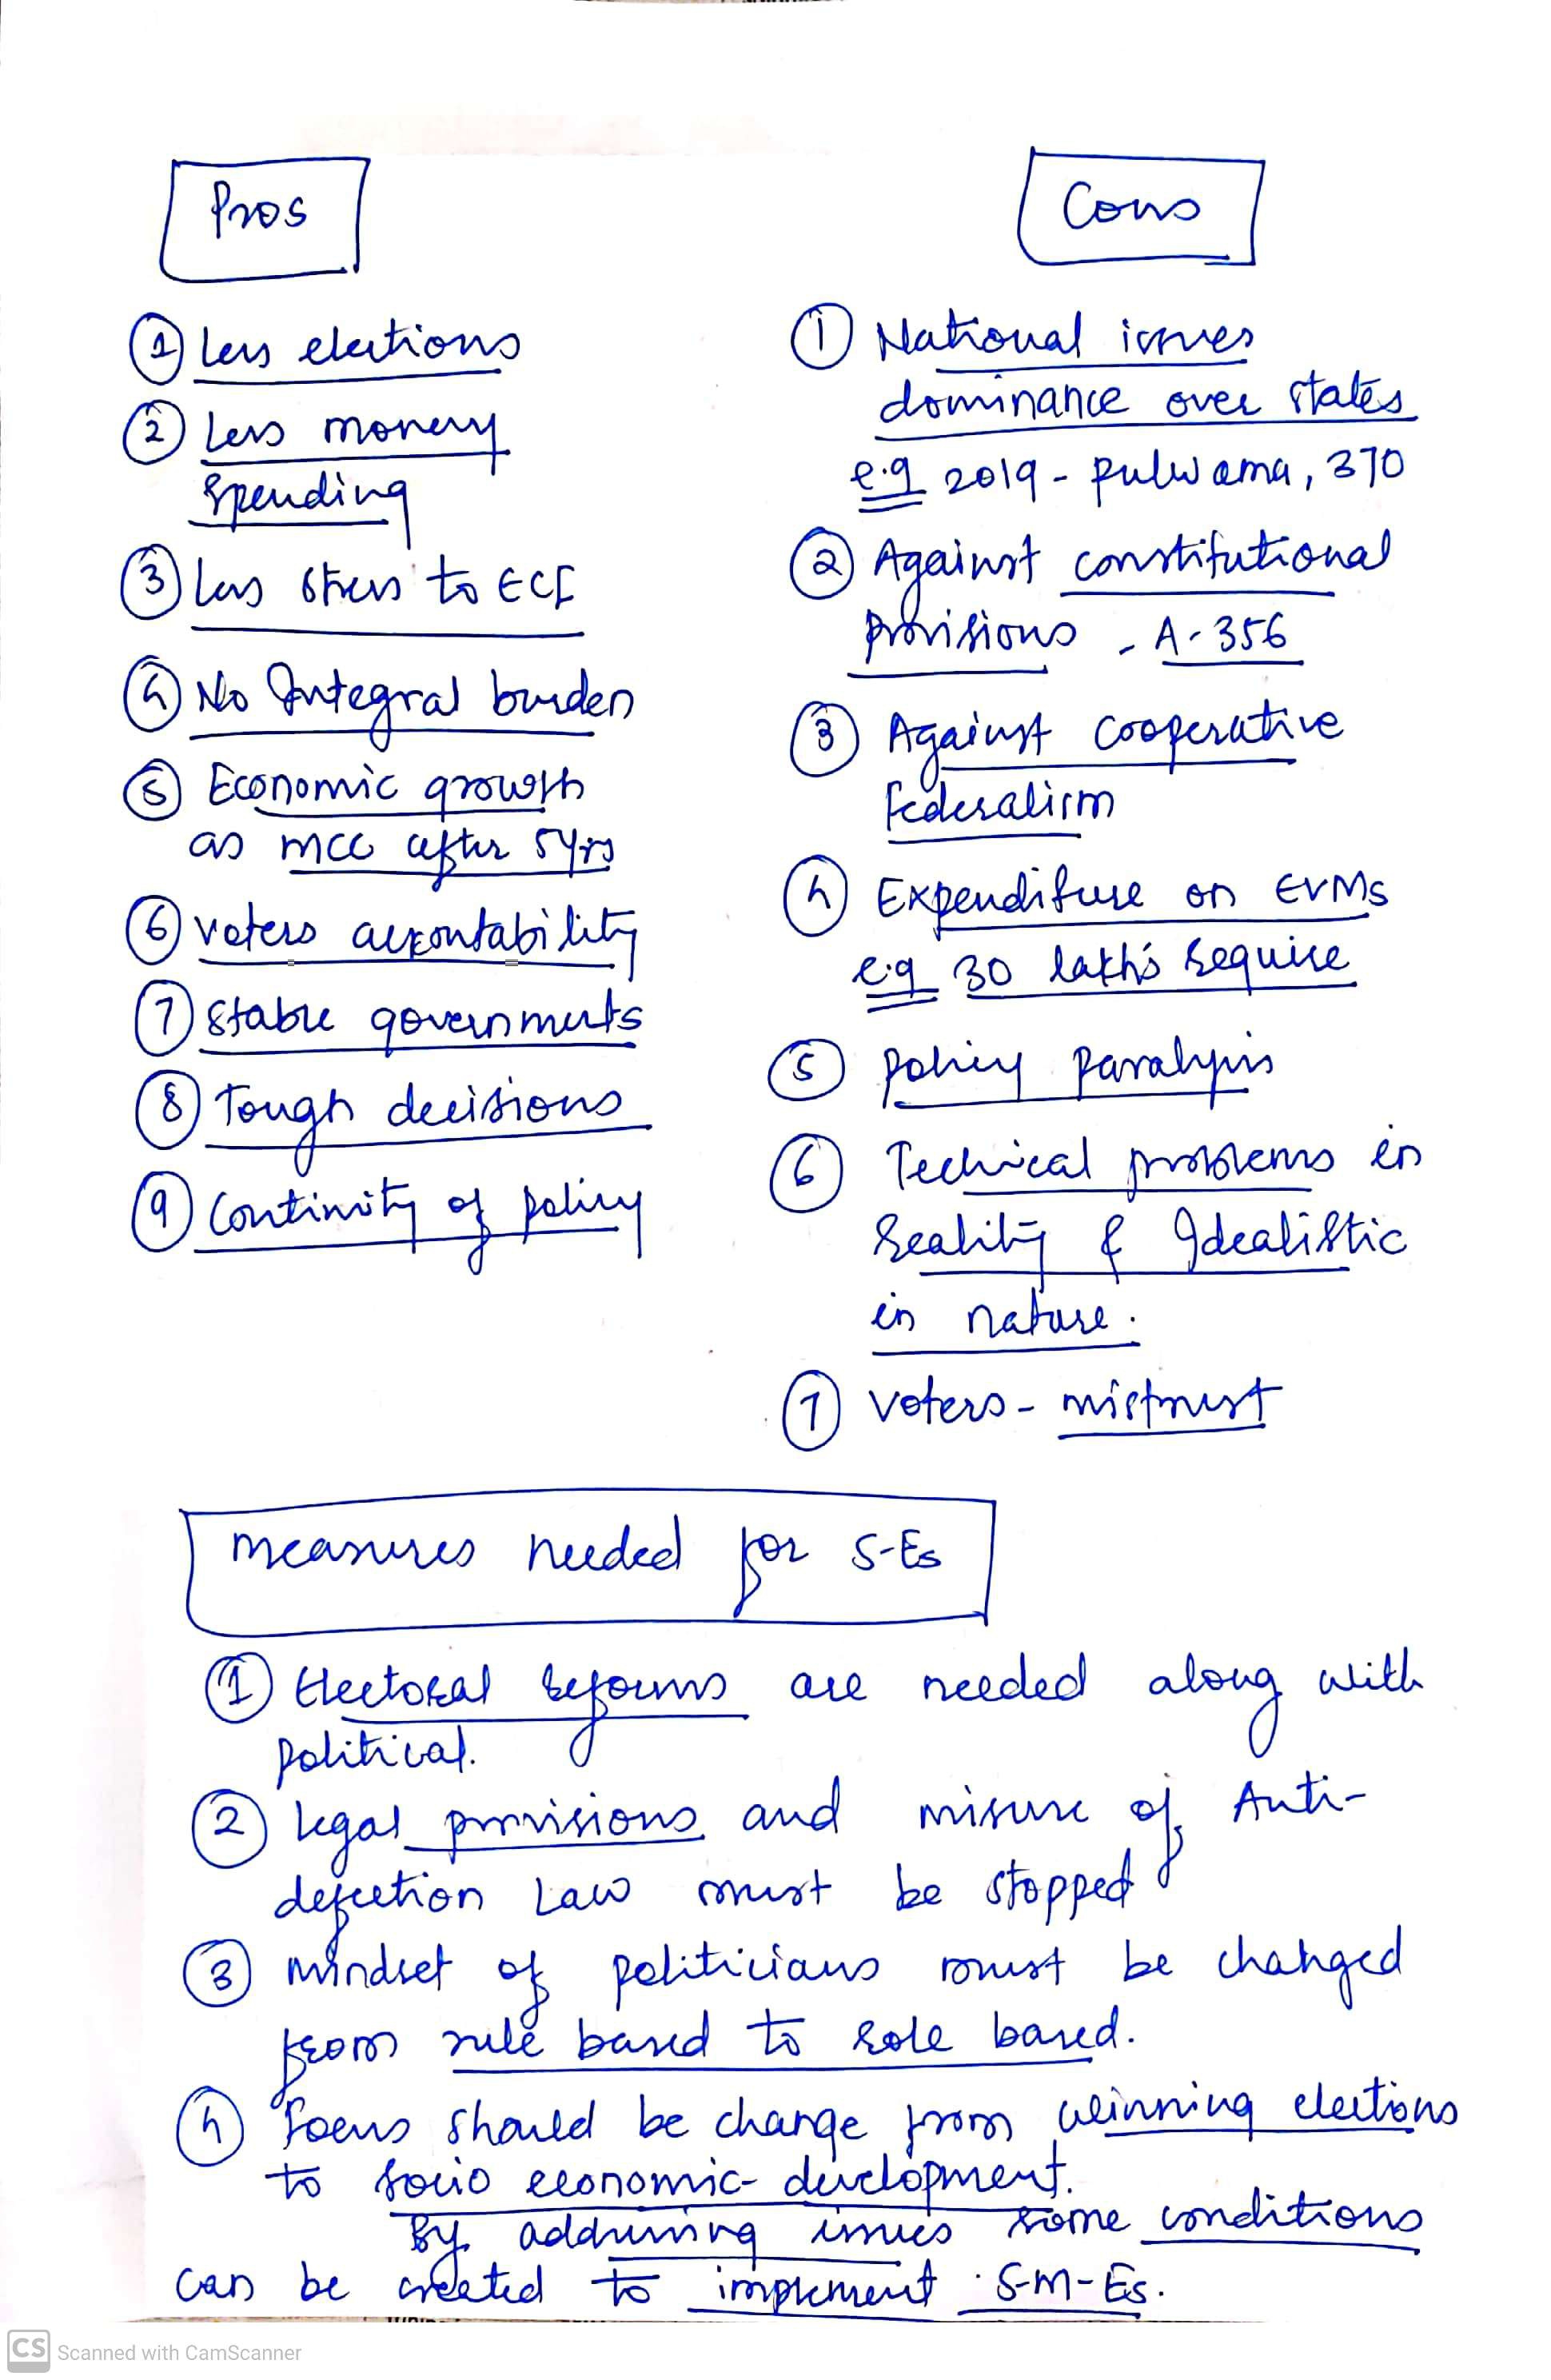 Pros
① Less elections
② Less monery
spending
③ Less stress to ECI
④ No Integral burden
⑤ Economic growth
as MCC after 5yrs
⑥ voters accontability
⑦ Stable governments
⑧ Tough decisions
⑨ Continuity of policy
Cons
① National issues
dominance over states
e.g 2019 - pulwama, 370
② Against constitutional
provisions - A-356
③ Against cooperative
federalism
④ Expenditure on EVMs
e.g 30 lakhs require
⑤ policy paralysis
⑥ Techical problems in
reality & Idealistic
in nature.
⑦ voters - mistrust
measures needed for S-Es
① Electoral reforms are needed along with
political.
② legal provisions and misuse of Anti-
defection Law must be stopped
③ mindset of politicians must be changed
from rule based to role based.
④ focus should be change from winning elections
to socio economic development.
By addressing issues some conditions
can be created to implement S-M-Es.
CS Scanned with CamScanner